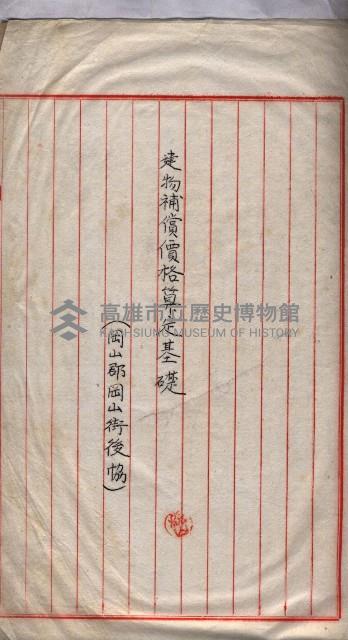 建物補償價格算定基礎
(岡山郡岡山街後協)
高雄市立歷史博物館
KAOHSIUNG MUSEUM OF HISTORY